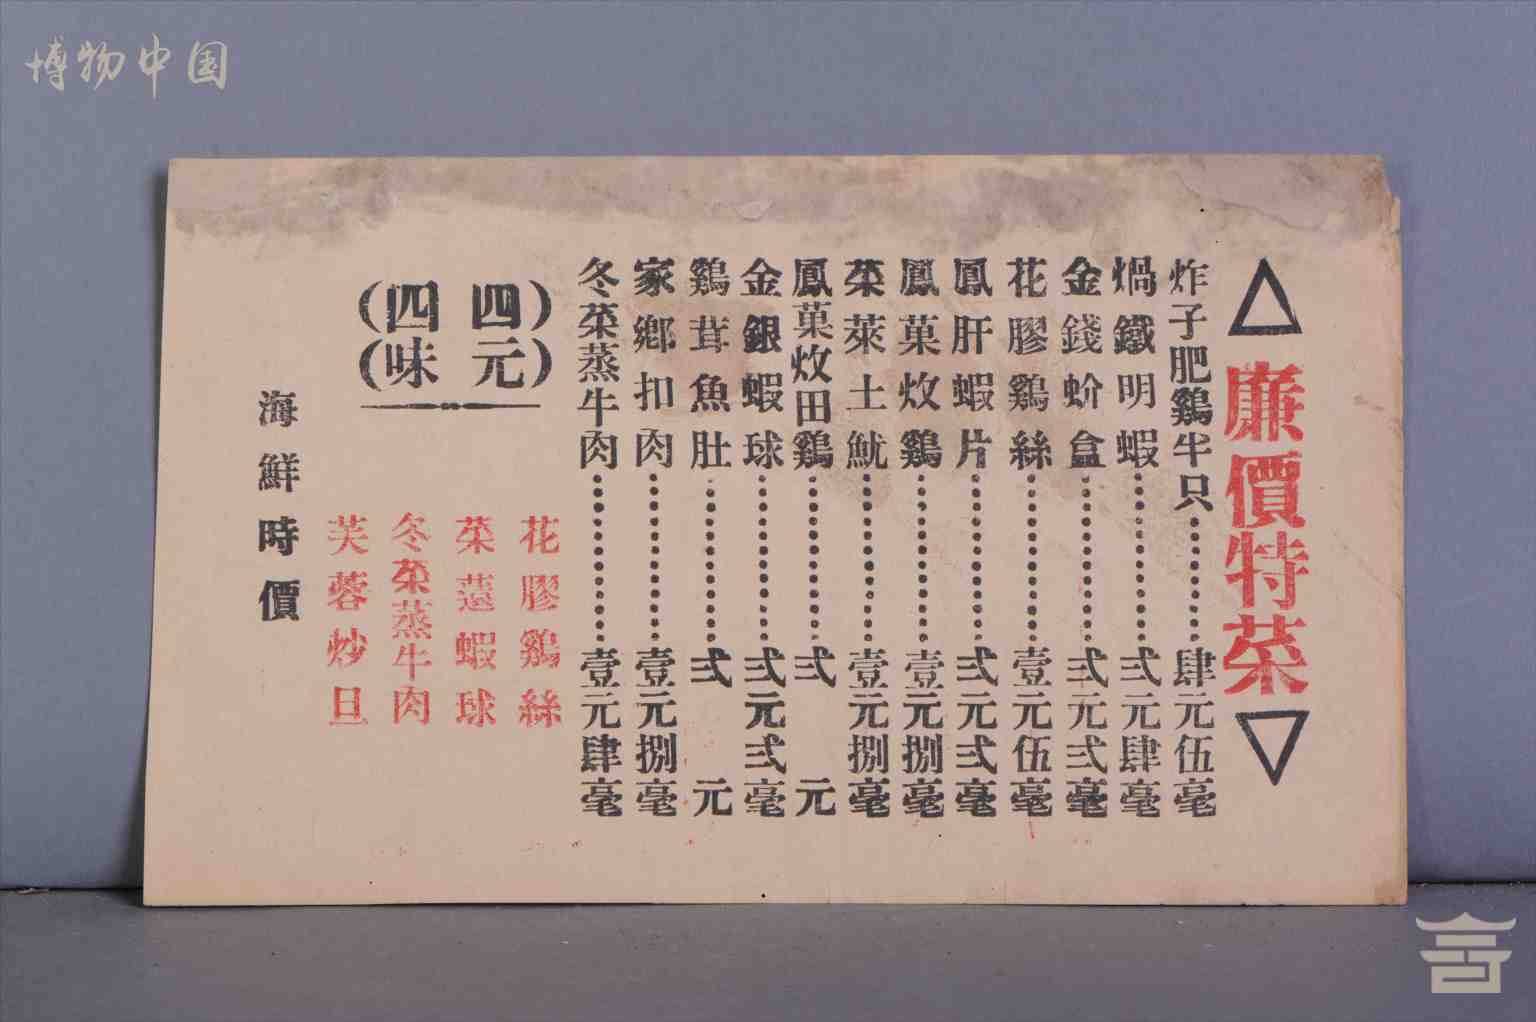 博物中国
廉價特菜
炸子肥鷄半只⋯⋯肆元伍毫
焗鐵明蝦⋯⋯弍元肆毫
金錢蚧盒⋯⋯弍元弍毫
花膠鷄絲⋯⋯壹元伍毫
鳳肝蝦片⋯⋯弍元弍毫
鳳菓炆鷄⋯⋯壹元捌毫
菜萊土魷⋯⋯壹元捌毫
鳳菓炆田鷄⋯⋯弍元
金銀蝦球⋯⋯弍元弍毫
鷄茸魚肚⋯⋯弍元
家鄉扣肉⋯⋯壹元捌毫
冬菜蒸牛肉⋯⋯壹元肆毫
(四元)
(四味)
花膠鷄絲
菜薳蝦球
冬菜蒸牛肉
芙蓉炒旦
海鮮時價